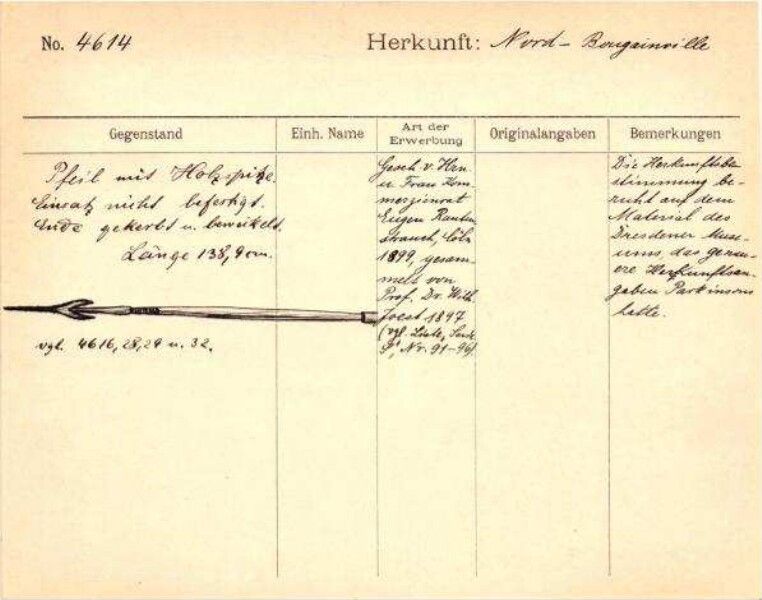 No. 4614
Herkunft: Nord-Bougainville
Gegenstand
Einh. Name
Art der Erwerbung
Originalangaben
Bemerkungen
Pfeil mit Holzspitze.
Einsatz nicht befestigt.
Ende gekerbt u. bewickelt.
Länge 138,9 cm.
vgl. 4616, 28, 29 u. 32.
Gesch. v. Hrn
u. Frau Kom-
merzienrat
Eugen Rauten-
strauch, Cöln
1899, gesam-
melt von
Prof. Dr. Wilh.
Joest 1897
(vgl. Liste,
Nr. 91-96).
Die Herkunftsbe-
stimmung be-
ruht auf dem
Material des
Dresdener Muse-
ums, das genau-
ere Herkunftsan-
gaben Parkinsons
hatte.